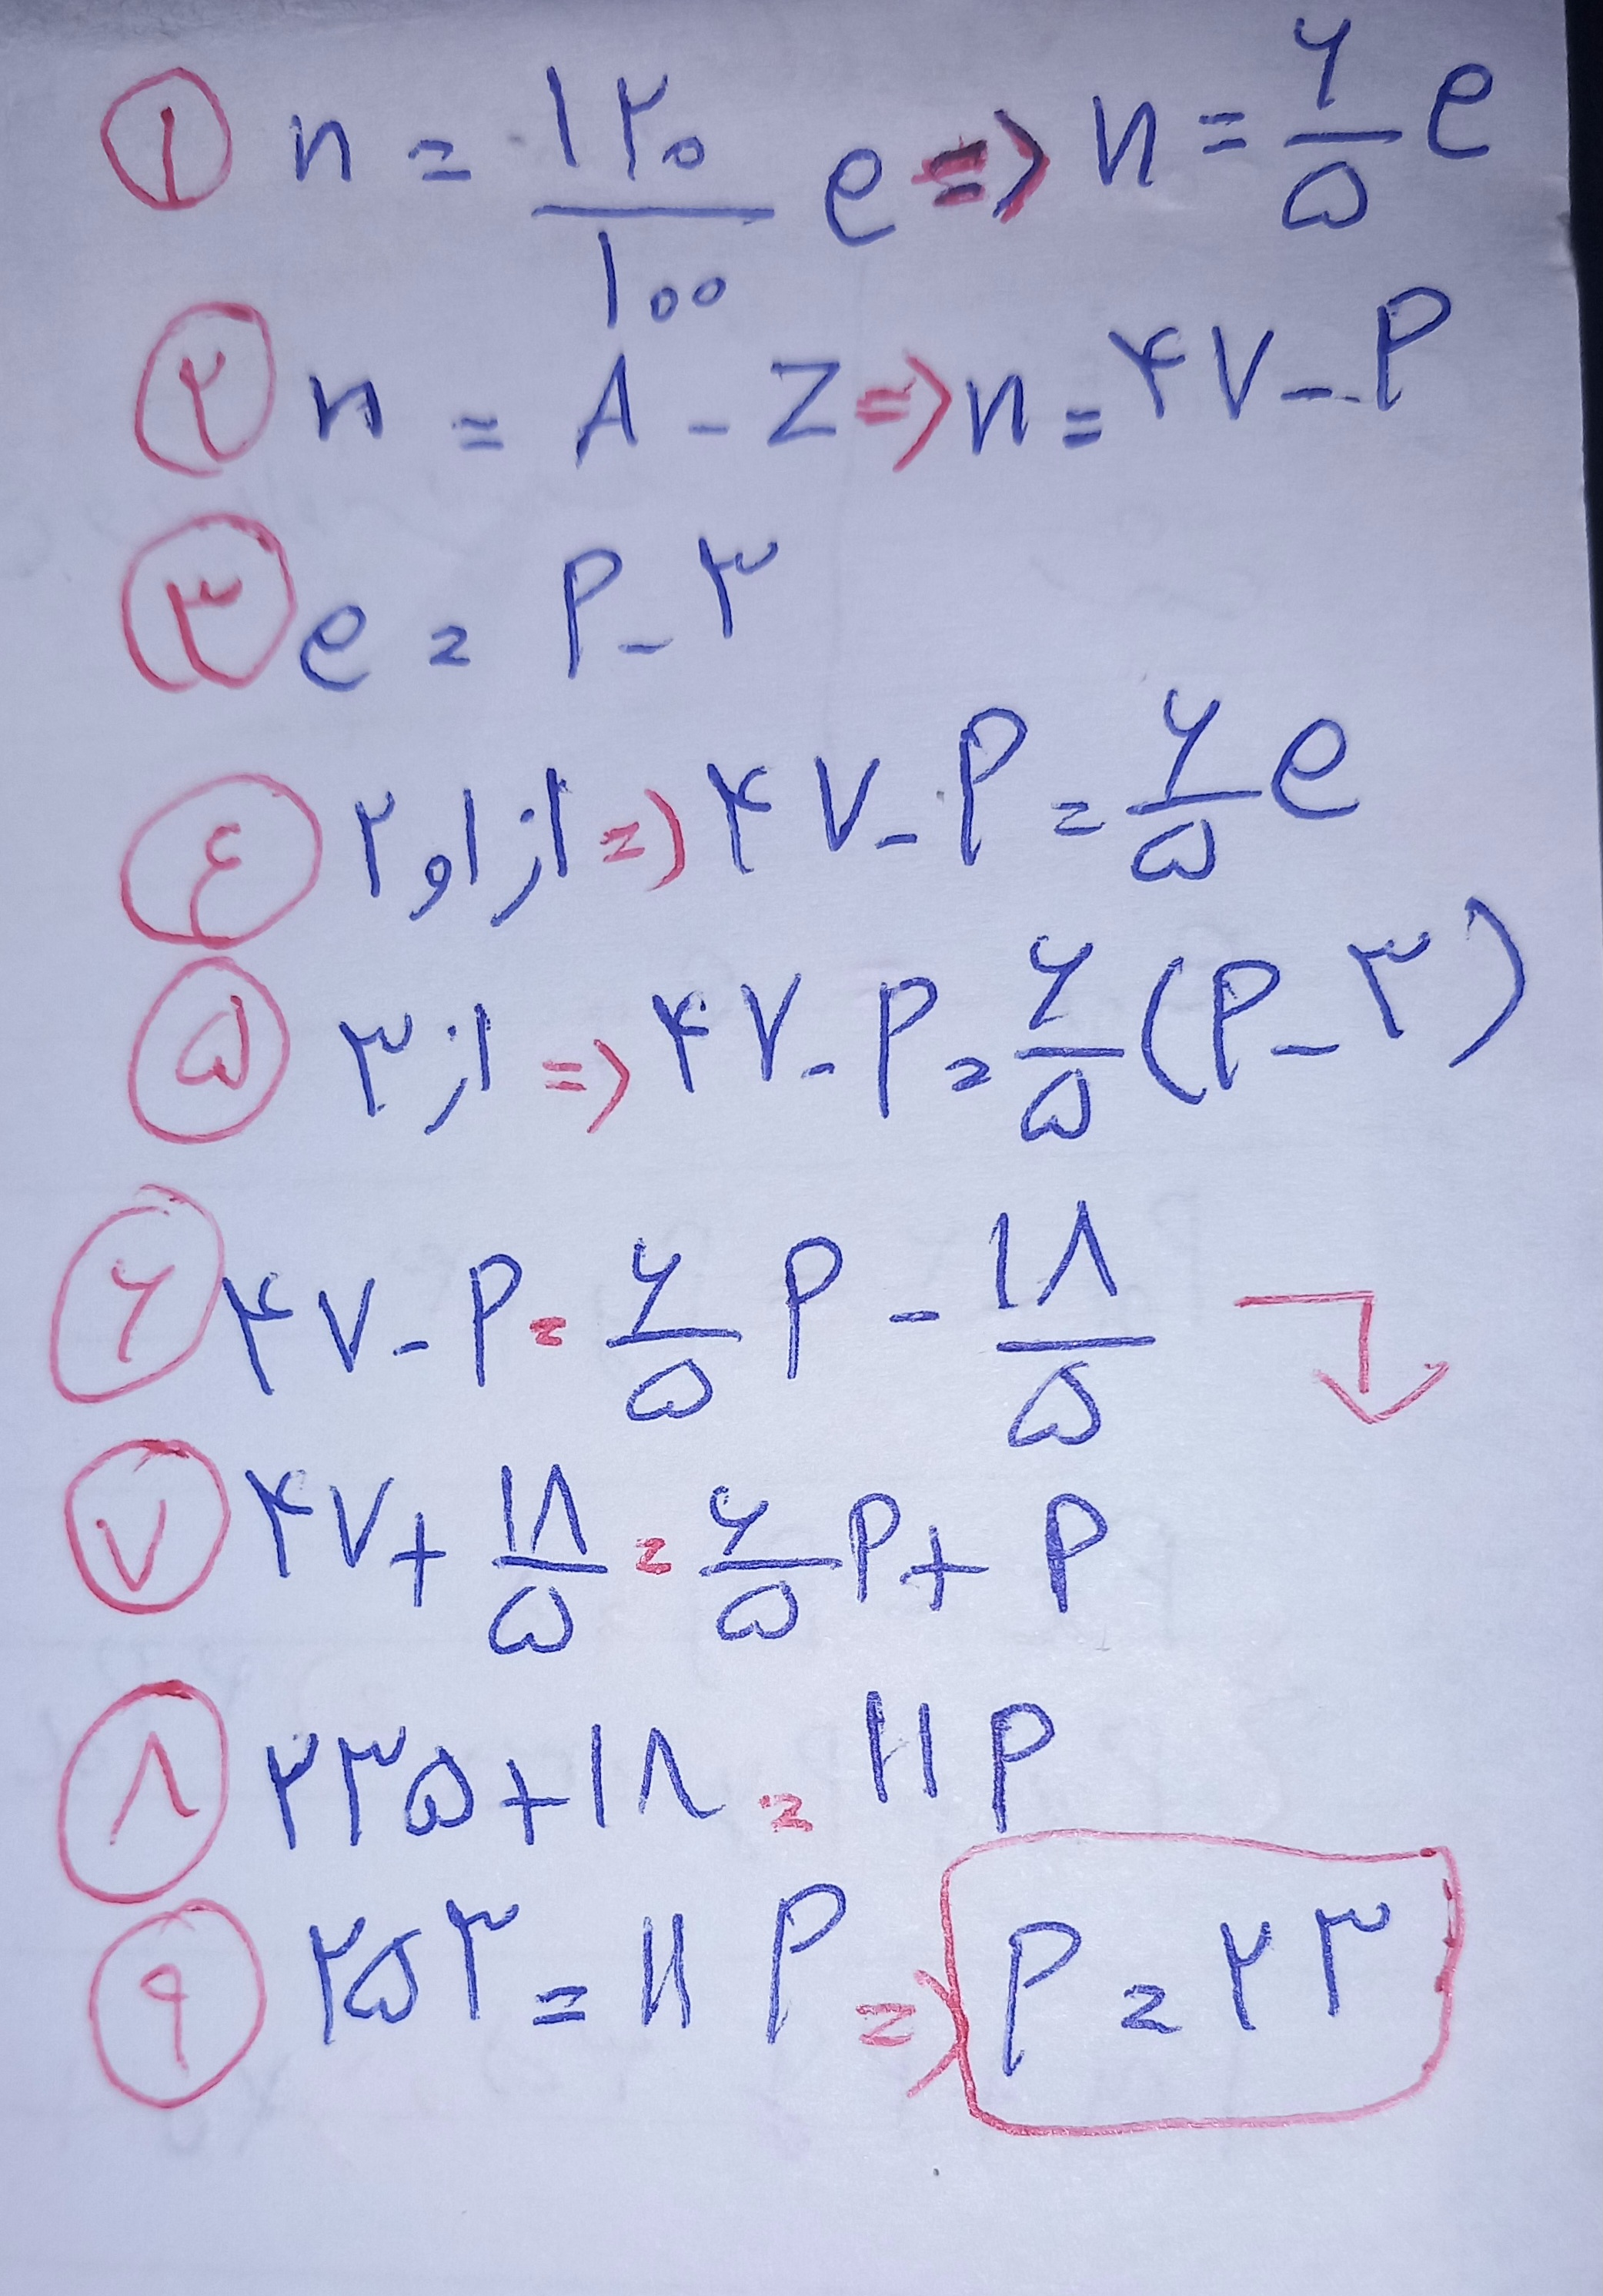 ۱ n = ۱۲۰/۱۰۰ e => n = ۶/۵ e
۲ n = A - Z => n = ۴۷ - P
۳ e = P - ۳
۴ از ۱ و ۲ => ۴۷ - P = ۶/۵ e
۵ از ۳ => ۴۷ - P = ۶/۵ (P - ۳)
۶ ۴۷ - P = ۶/۵ P - ۱۸/۵
۷ ۴۷ + ۱۸/۵ = ۶/۵ P + P
۸ ۲۳۵ + ۱۸ = ۱۱ P
۹ ۲۵۳ = ۱۱ P => P = ۲۳